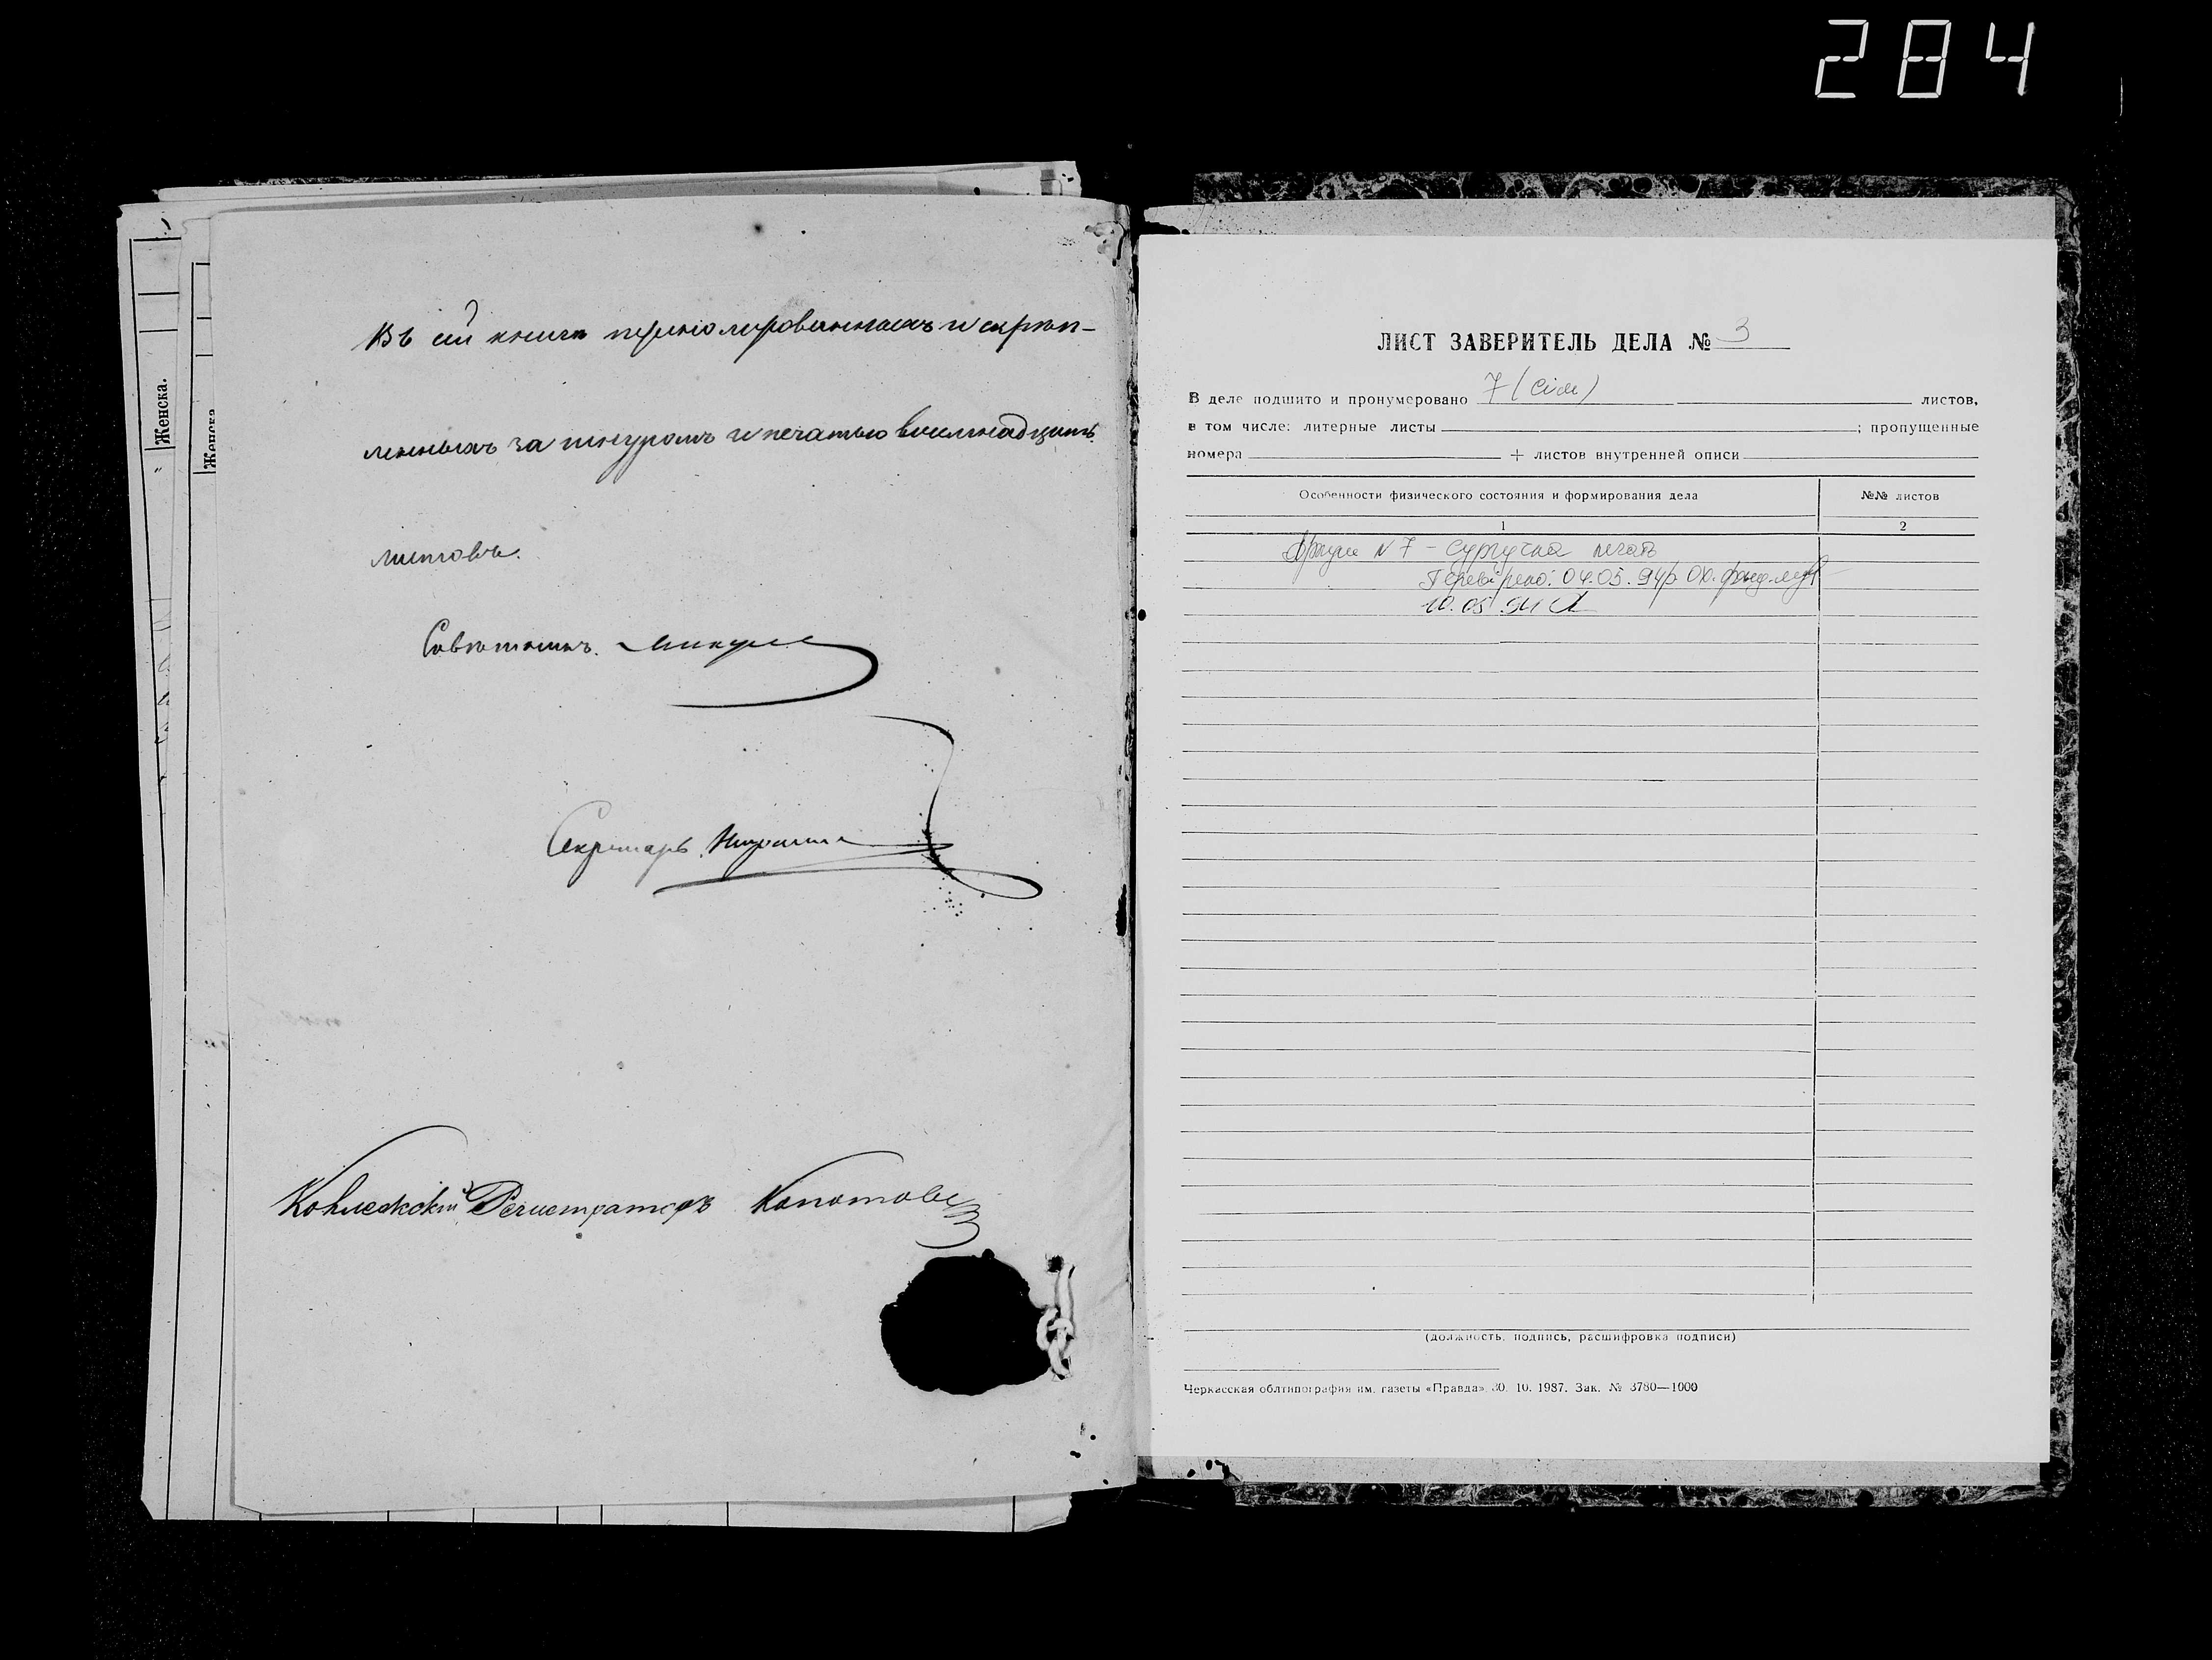 284
Женска.
Женска
Въ сей книгѣ перенолированныхъ и скрѣп-
ленныхъ за шнуромъ и печатью восемнадцать
листовъ.
Совѣтникъ
Секретарь
Коллежскій Регистраторъ
ЛИСТ ЗАВЕРИТЕЛЬ ДЕЛА № 3
В деле подшито и пронумеровано 7 (сім) листов,
в том числе: литерные листы ; пропущенные
номера + листов внутренней описи
Особенности физического состояния и формирования дела №№ листов
1 2
Аркуш N 7 – сургучна печать
Перевірено: 04.05.94р
10.05.94
(должность, подпись, расшифровка подписи)
Черкасская облтипография им. газеты «Правда» 30. 10. 1987. Зак. № 3780—1000